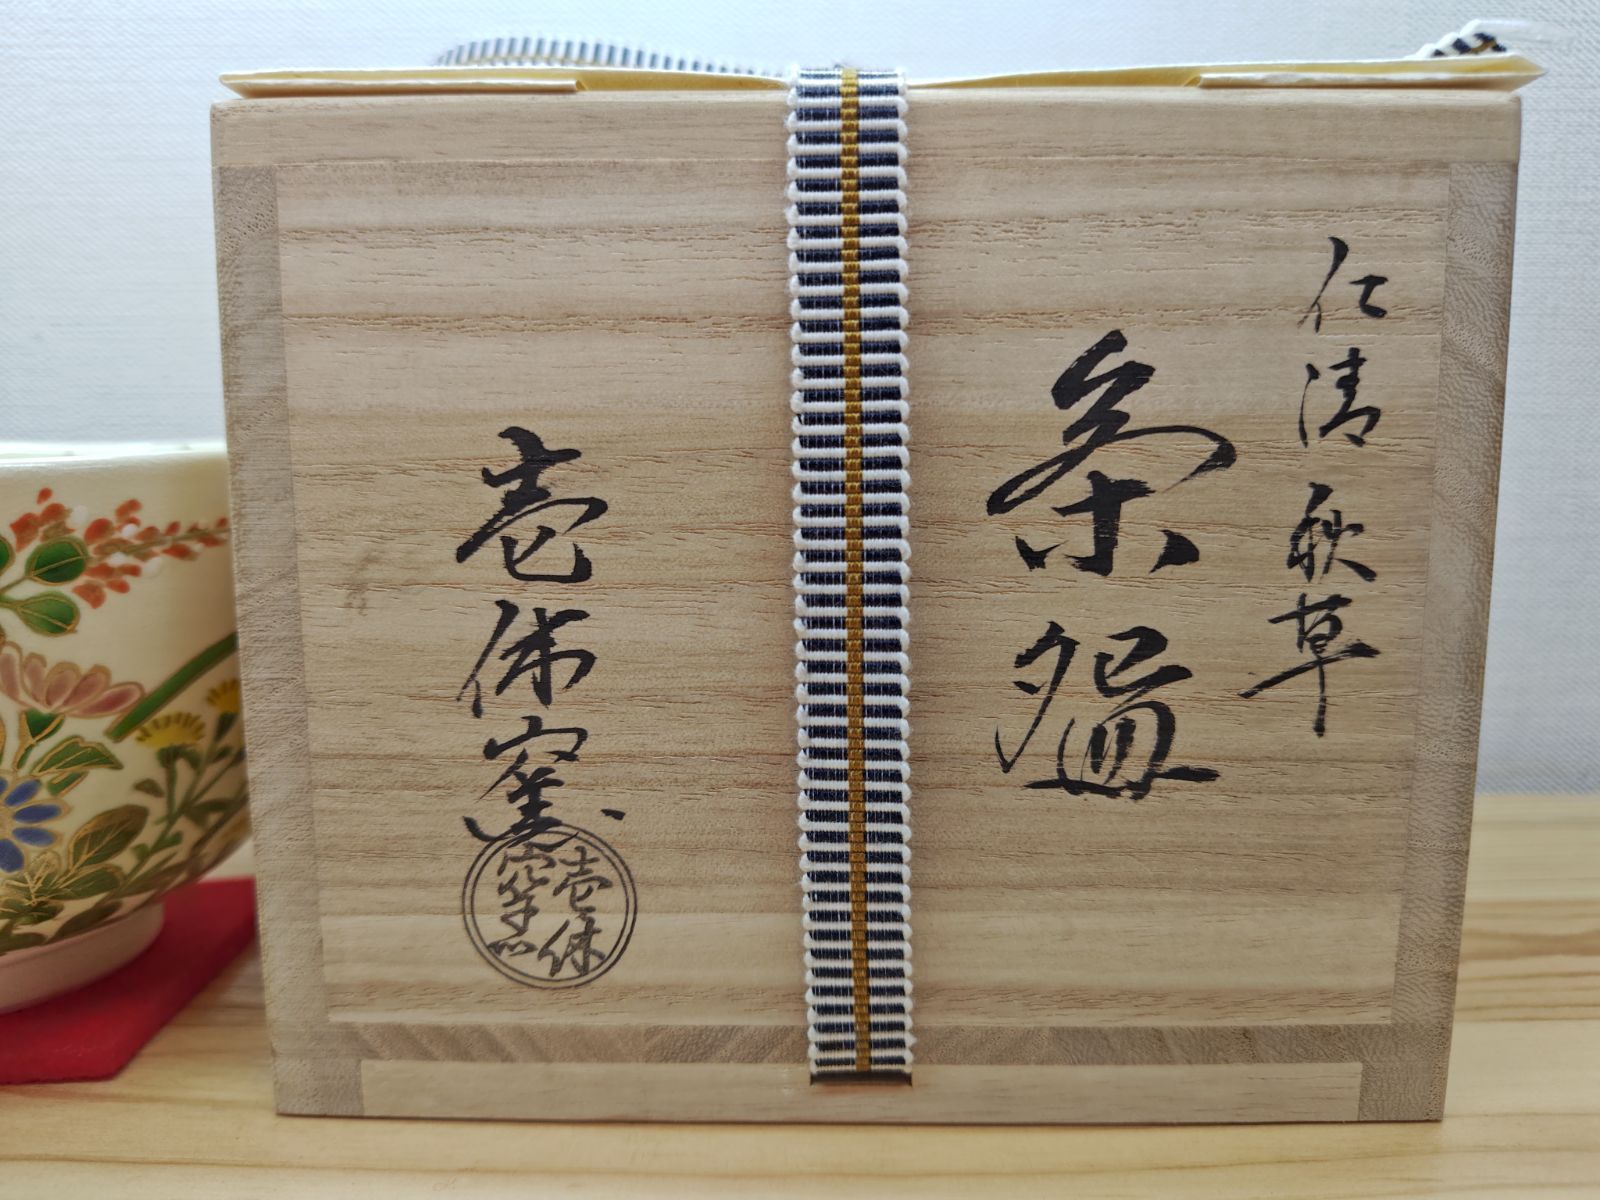 仁清秋草
茶碗
壱休窯
壱休
窯